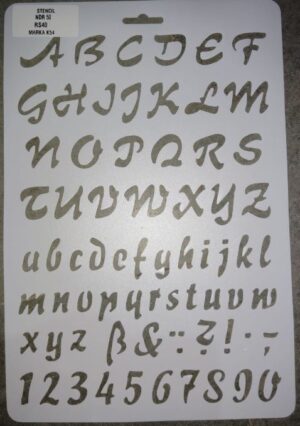 STENCIL
NDR 50
RS40
MARKA K54
A B C D E F
G H I J K L M
N O P Q R S
T U V W X Y Z
a b c d e f g h i j k l
m n o p q r s t u v w
x y z ß & : ? ! . -
1 2 3 4 5 6 7 8 9 0